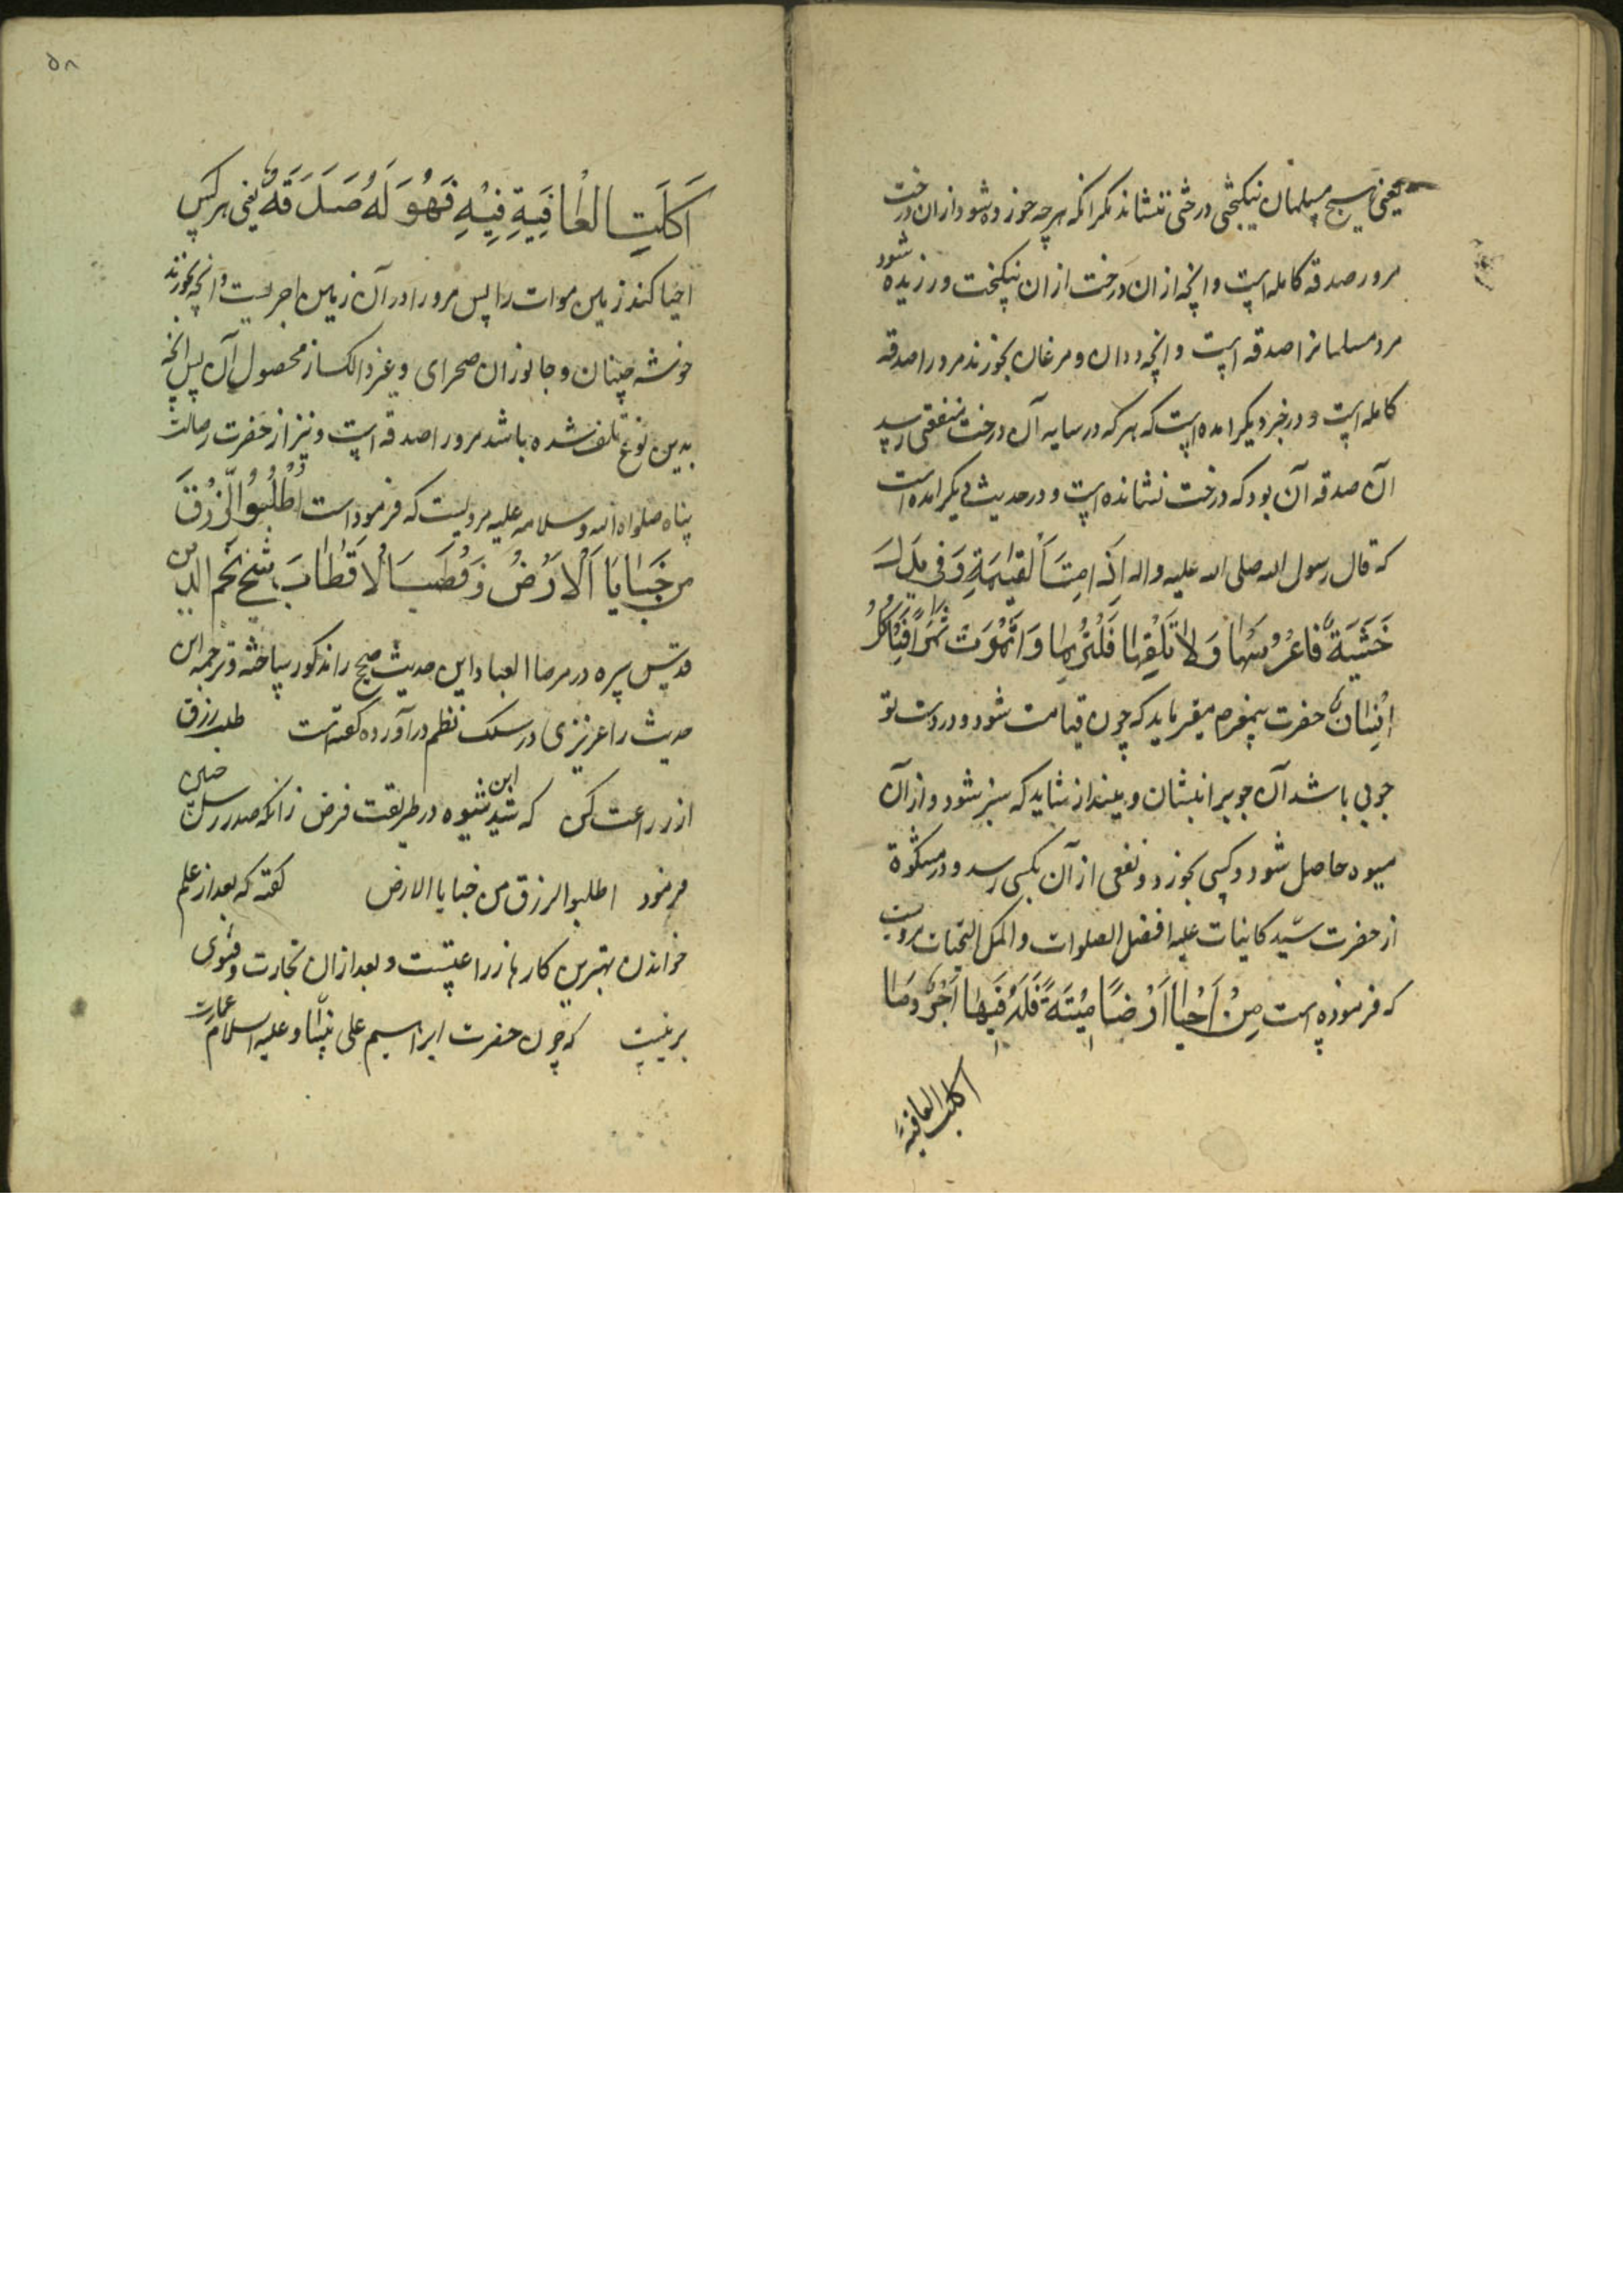 یعنی هیچ مسلمان نیکبختی درختی ننشاند مکر انکه هرچه خورده شود ازان درخت
مر ورا صدقه کامله است و انچه ازان درخت ازان نیکبخت ورزیده شود
مرد مسلمانرا صدقه است و انچه ددان و مرغان بخورند مر ورا صدقه
کامله است و در خبر دیکر امده است که هر که در سایه آن درخت منفعتی رسد
آن صدقه آن بود که درخت نشانده است و در حدیث دیکر امده است
که قال رسول الله صلی الله علیه واله القیمة وفی یدک
خَشَبَةٌ فاغرسها وَلا تلقها
انسان حضرت پیغمبرم میفرماید که چون قیامت شود و در دست تو
چوبی باشد آن چوبرا بنشان و مینداز شاید که سبز شود و از آن
میوه حاصل شود و کسی بخورد و نفعی از آن بکسی رسد و در مشکوة
از حضرت سیّد کاینات علیه افضل الصلوات و اکمل التحیات مرویست
که فرموده است مَنْ اَحْیا اَرْضًا مَیْتَةً فَلَهُ فیها اَجْرٌ وما
اکلت العافیة
۵۸
اَکَلَتِ العٰافِیَةِ فِیْهِ فَهُوَ لَهُ صَدَقَةٌ یعنی هر کس
احیا کند زمین موات را پس مر ورا در آن زمین اجریست و انچه بخورند
خوشه چینان و جانوران صحرای و غیر ذالک از محصول آن پس انچه
بدین نوع تلف شده باشد مر ورا صدقه است و نیز از حضرت رسالت
پناه صلواة الله و سلامه علیه مرویست که فرموداست اُطْلُبُوا الرِّزْقَ
من خَبٰایَا اَلْاَرْضُ وَقُطْبَ الْاَقْطٰابَ شیخ نجم الدین
قدس سره در مرصاا العباد این حدیث صحیح را مذکور ساخته و ترجمه این
حدیث را عزیزی در سلک نظم در آورده کفته است طلب رزق
از زراعت کن که شد این شیوه در طریقت فرض زانکه صدر رسل
فرمود اطلبوا الرزق من خبایا الارض کفته که بعد از علم
خواندن بهترین کارها زراعتست و بعد ازان تجارت و فتوی
برینست که چون حضرت ابراهیم علی نبیّنا و علیه السلام عمارت